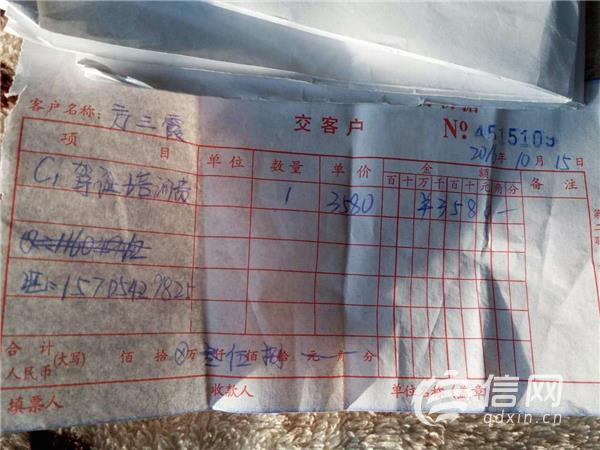 客户名称：方三霞
交客户
№ 4515109
2016年10月15日
项目 单位 数量 单价 金额 备注
百十万千百十元角分
C1 驾证培训费 1 3580 ¥3580—
15705429825
合计人民币(大写) 佰 拾 ⊗万 仟伍佰捌拾 元 角 分
填票人 收款人 单位名称 章
信网
qdxin.cn